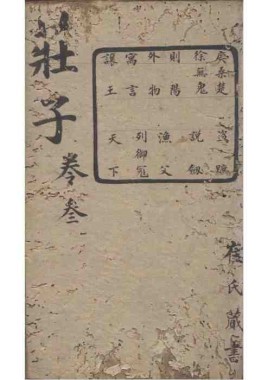 庚桑楚
徐無鬼
則陽
外物
寓言
讓王
盜跖
說劍
漁父
列御寇
天下
莊子 卷叁
崔氏藏書